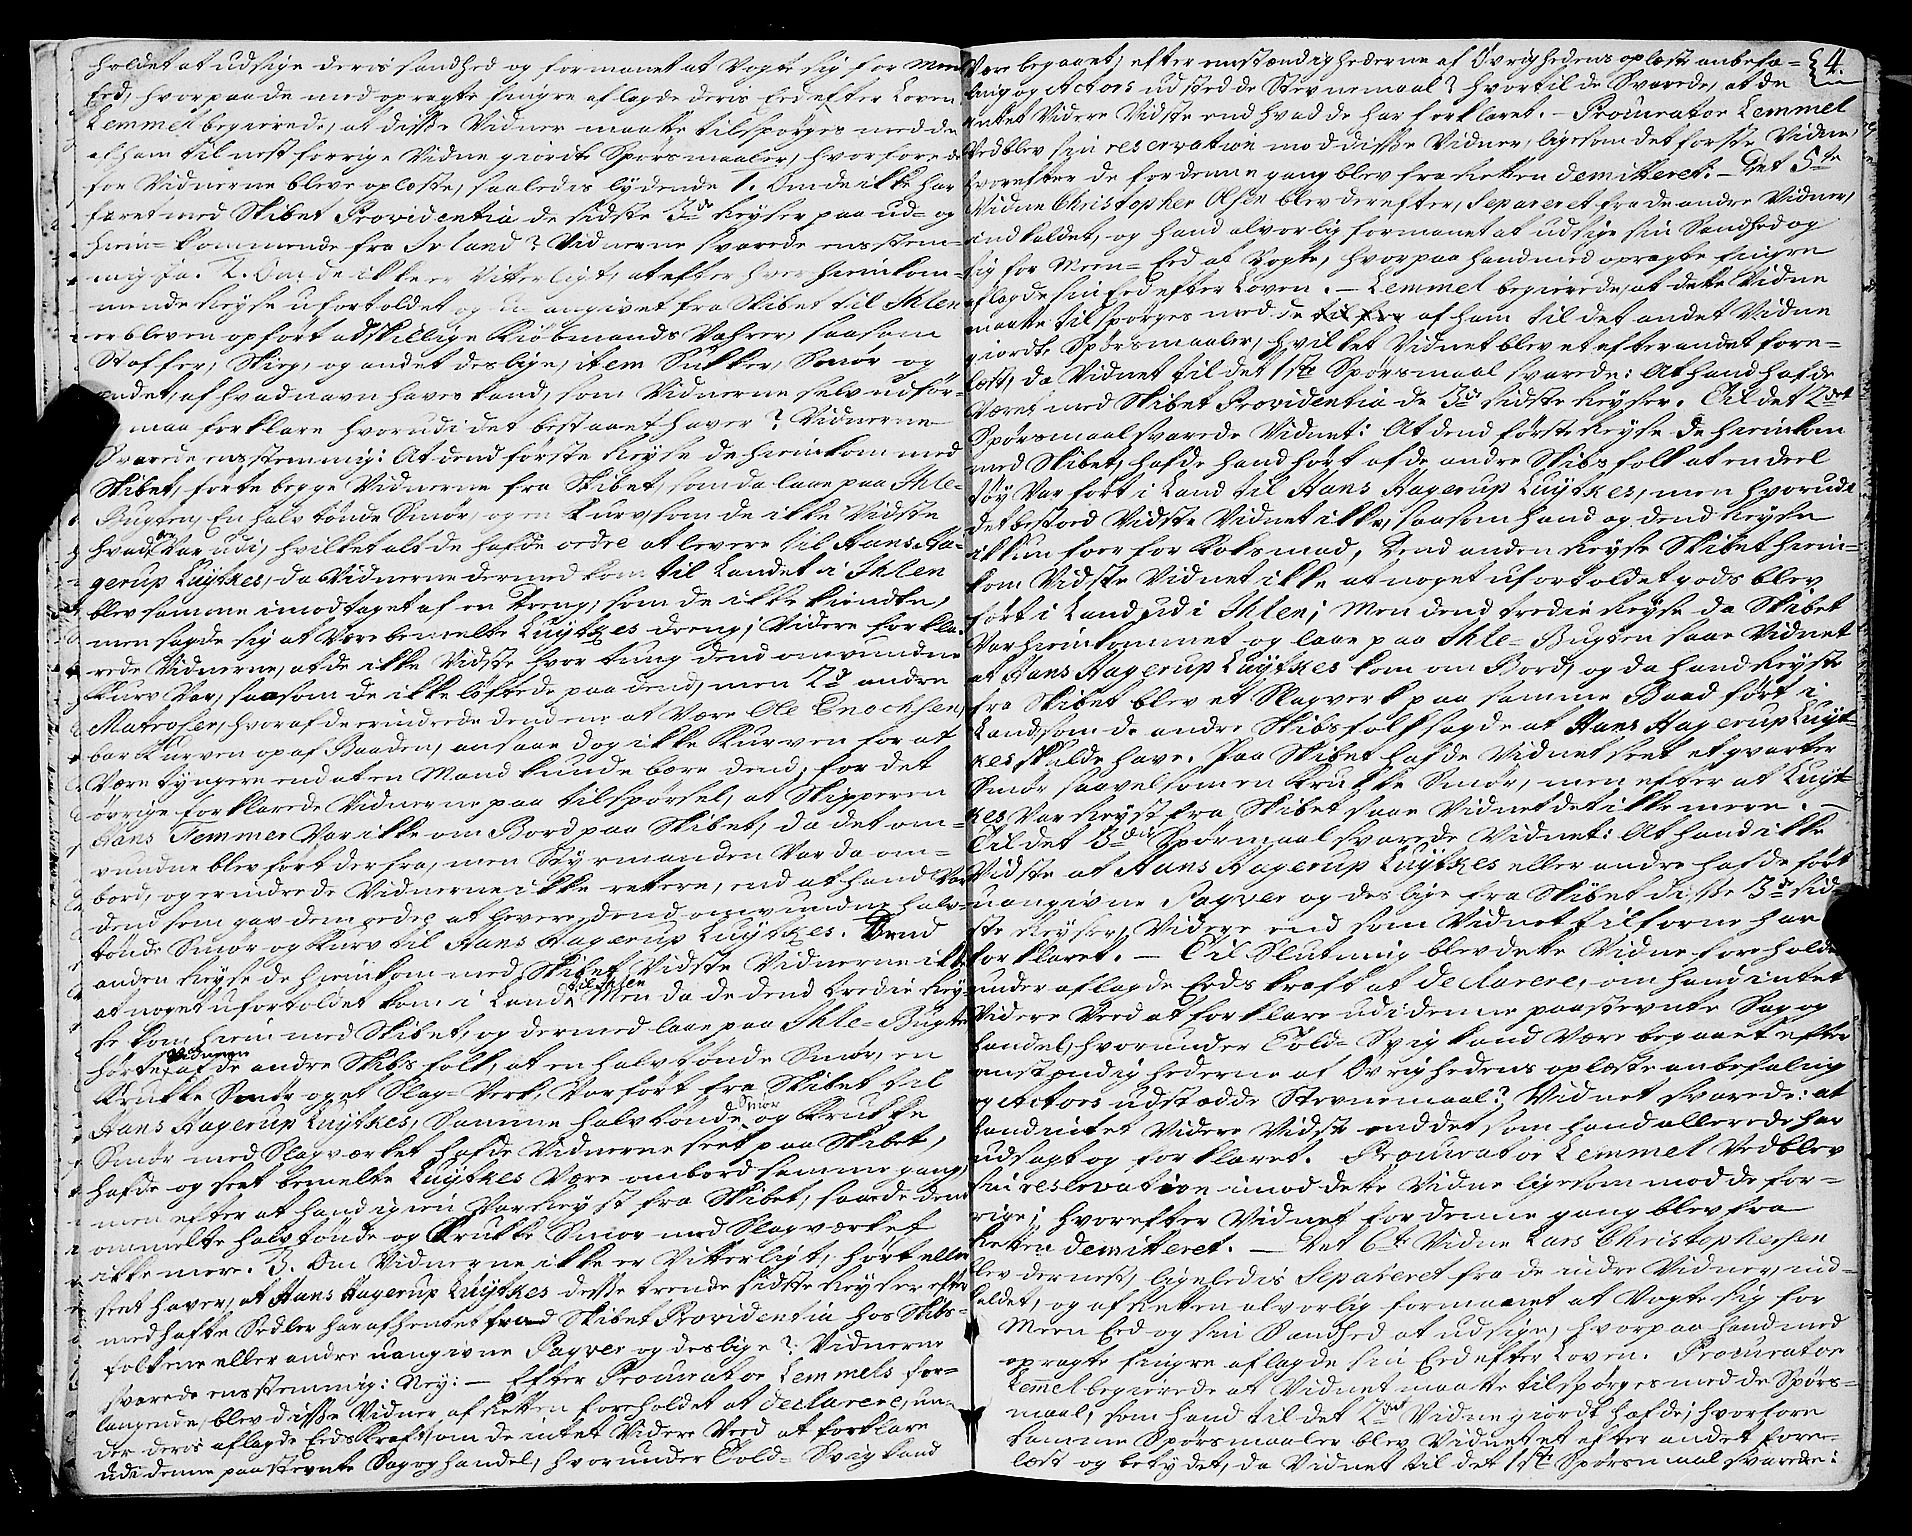 holdet at udsige deris sandhed og formanet at Vogte sig for Meen
Eed, hvorpaa de med opragte fingre aflagde deris Eed efter Loven.
Lemmel begierede, at disse Vidner maatte tilspørges med de
af ham til nest forrige Vidne giordte Spørsmaaler, hvorfore de
for Vidnerne bleve oplæste, saaledis lydende 1. Om de ikke har
faret med Skibet Providentia de sidste 3de Reyser paa ud- og
hiem-kommende fra Irland? Vidnerne svarede eenstem-
mig Ja. 2. Om de ikke er Vitterligt, at efter hver hiemkom-
mende Reyse ufortoldet og u- angivet fra Skibet til Ihlen
er bleven opført adskillige Kiøbmands Vahrer, saasom
Stoffer, Skieg, og andet deslige, item Sukker, Smør og
andet, af hvad navn haves kand, som Vidnerne selv udfør-
maa forklare hvorudi det bestaaet haver? Vidnerne
Svarede eensstemmig: At dend første Reyse de hiemkom med
Skibet, førte begge Vidnerne fra Skibet, som da laae paa Ihle-
Bugten, En halv tønde Smør, og en Kurv, som de ikke Vidste
hvad der Var udi, hvilket alt de hafde ordre at levere til Hans Ha-
gerup Lüytkes, da Vidnerne dermed kom til Landet i Ihlen
blev samme imodtaget af en Dreng, som de ikke kiendte,
men sagde sig at Være bemelte Lüytkes dreng; Videre forkla-
rede Vidnerne, at de ikke Vidste hvor tung dend omvundne
Kurv Var, saasom de ikke løftede paa dend, men 2de andre
Matroser, hvoraf de erindrede dend ene at Være Ole Enochsen,
bar Kurven op af Baaden, ansaae dog ikke Kurven for at
Være tyngere end at en Mand kunde bære dend; for det
øvrige forklarede Vidnerne paa tilspørsel, at Skipperen
Hans Temmer Var ikke om Bord paa Skibet, da det om-
vundne blev ført derfra, men Styrmanden Var da om-
bord, og erindrede Vidnerne ikke rettere, end at hand Var
dend som gav dem ordre at levere dend omvundne halv-
tønde Smør og Kurv til Hans Hagerup Luÿtkes. Dend
anden Reyse de hiemkom med Skibet, Vidste Vidnerne ikke
at noget ufortoldet kom i Land til Ihlen Men da de dend tredie Rey-
se kom hiem med Skibet, og dermed laae paa Ihle-Bugten
hørte Vidnerne af de andre Skibsfolk, at en halv tønde Smør, en
Krukke Smør og et Slag-Verk, Var ført fra Skibet til
Hans Hagerup Luÿtkes, Samme halv tønde Smør og Krukke
Smør med Slagverket hafde Vidnerne seet paa Skibet,
hafde og seet bemelte Luÿtkes Være ombord samme gang,
men efter at hand igien Var Reyst fra Skibet, saae de dend
ommelte halv tønde og Krukke Smør med Slagværket
ikke mere. 3. Om Vidnerne ikke er Vitterligt, hørt eller
seet haver, at Hans Hagerup Luÿtkes desse trende sidste Reyser efter
med hafte Sedler har afhentet fra Skibet Providentia hos Skibs-
folkene eller andre uangivne Pagver og deslige? Vidnerne
svarede eensstemmig: Ney: — Efter Procurator Lemmels for-
langende, blev disse Vidner af Retten foreholdet at declarere, un-
der deris aflagde Eeds kraft, om de intet Videre Veed at forklare
udi denne paastevnte Sag og handel, hvorunder Told-Svig kand
4.
Være begaaet, efter omstændighederne af Øvrighedens oplæste anbefa-
ling og Actors udstedde Stevnemaal? hvortil de Svarede, at de
intet Videre Vidste end hvad de har forklaret. — Procurator Lemmel
Vedblev sin reservation mod disse Vidner, ligesom det første Vidne,
hvorefter de for denne gang blev fra Retten demitteret. — Det 5te
Vidne Christopher Olsen blev derefter, Separeret fra de andre Vidner,
indkaldet, og hand alvorlig formanet at udsige sin Sandhed og
sig for Meen-Eed at Vogte, hvorpaa hand med opragte fingre
aflagde sin Eed efter Loven. — Lemmel begierede, at dette Vidne
maatte tilspørges med de af ham til det andet Vidne
giordte Spørsmaaler, hvilket Vidnet blev et efter andet fore-
læst, da Vidnet til det 1ste Spørsmaal svarede: At hand hafde
Været med Skibet Providentia de 3de sidste Reyser. Til det 2det
Spørsmaal svarede Vidnet: At dend første Reyse de hiemkom
med Skibet, hafde hand hørt af de andre Skibsfolk at en deel
tøy Var ført i Land til Hans Hagerup Luÿtkes, men hvorudi
det bestoed Vidste Vidnet ikke, saasom hand og dend Reyse
ikkun foer for Koksmad, Dend anden Reyse Skibet hiem-
kom Vidste Vidnet ikke at noget ufortoldet gods blev
ført i Land udi Ihlen; Men dend tredie Reyse da Skibet
Var hiemkommet og laae paa Ihle-Bugten saae Vidnet
at Hans Hagerup Luÿtkes kom om Bord, og da hand Reyste
fra Skibet blev et Slagverk paa samme Baad ført i
Land, som de andre Skibsfolk sagde at Hans Hagerup Luÿt-
kes skulde have. Paa Skibet hafde Vidnet seet et qvarter
Smør saavelsom en Krukke Smør, men efter at Luÿt-
kes Var Reyst fra Skibet saae Vidnet det ikke mere. —
Til det 3die Spørmaal svarede Vidnet: At hand ikke
Vidste at Hans Hagerup Luÿtkes eller andre hafde ført
uangivne Pagver og deslige fra Skibet disse 3de sid-
ste Reyser, Videre end som Vidnet tilforne har
forklaret. — Til Slutning blev dette Vidne foreholdet
under aflagde Eeds kraft at declarere, om hand intet
Videre Veed at forklare udi denne paastevnte Sag og
handel, hvorunder Told-Svig kand Være begaaet efter
omstændighederne af Øvrighedens oplæste anbefaling
og Actors udstædde Stevnemaal? Vidnet svarede: at
hand intet Videre Vidste end det, som hand allerede har
udsagt og forklaret. Procurator Lemmel Vedblev
sin reservation imod dette Vidne ligesom mod de for-
rige; hvorefter Vidnet for denne gang blev fra
Retten demitteret. — Det 6te Vidne Lars Christophersen
blev dernest, ligeledis Separeret fra de andre Vidner, ind-
kaldet, og af Retten alvorlig formanet at Vogte sig for
Meen Eed og sin Sandhed at udsige, hvorpaa hand med
opragte fingre aflagde sin Eed efter Loven. Procurator
Lemmel begierede at Vidnet maatte tilspørges med de Spørs-
maal, som hand til det 2det Vidne giordt hafde; hvorfore
samme Spørsmaaler blev Vidnet et efter andet fore-
læst og betydet, da Vidnet til det 1ste Spørsmaal svarede: